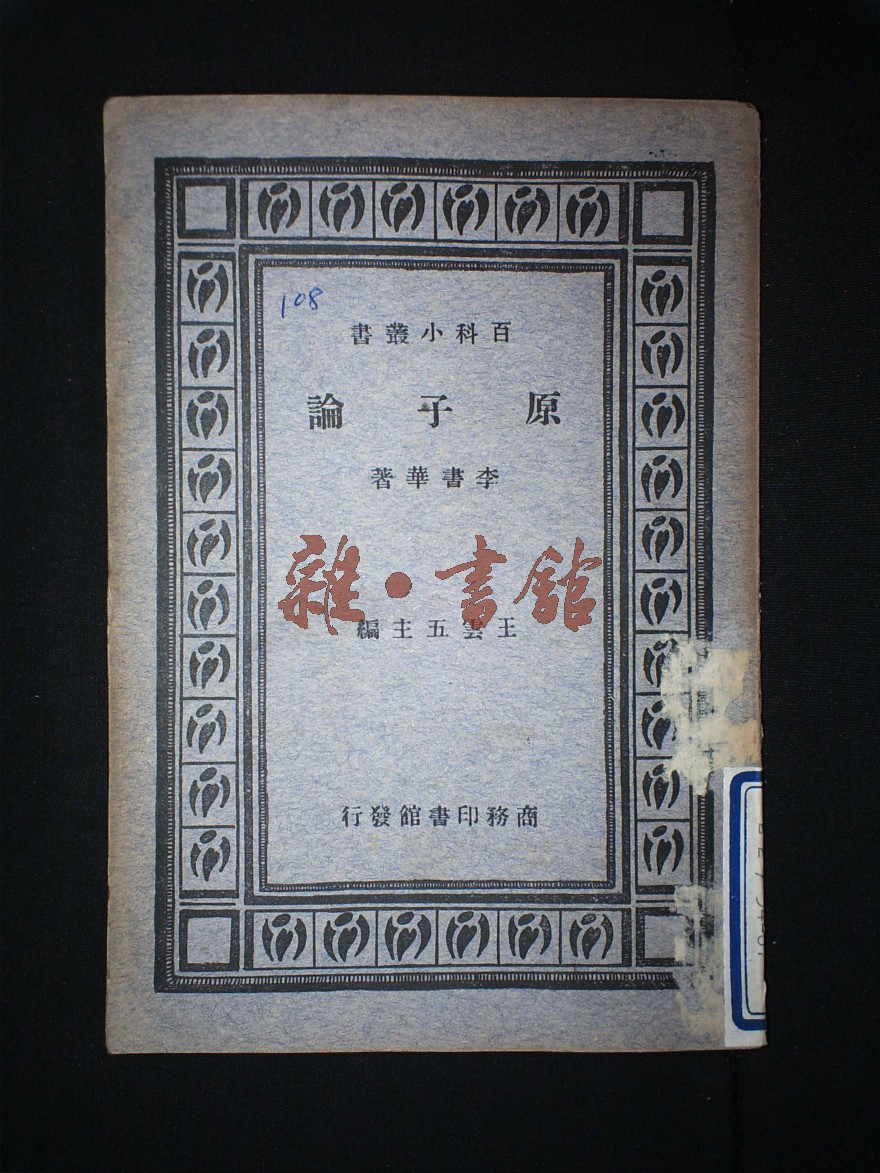 108
百科小叢書
原子論
李書華著
雜·書館
王雲五主編
商務印書館發行